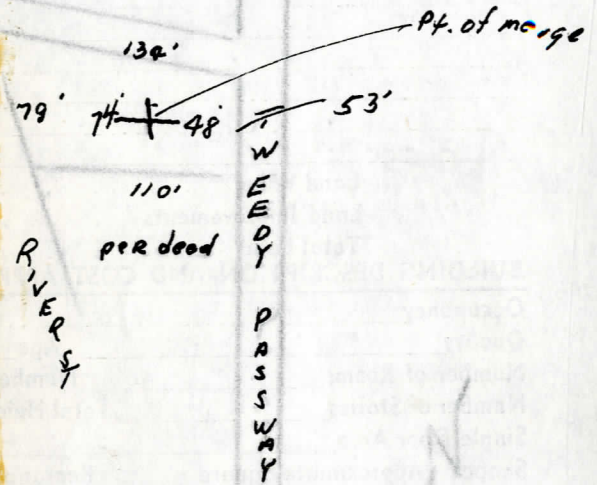 Pt. of merge
134'
79' 74' 48' 53'
110'
per deed
RIVER ST
WEEDY PASSWAY
N
Land
Land Improvements
Total
BUILDING DESCRIPTION AND COST APP
Occupancy
Quality
Number of Rooms
Number of Stories
Simple Floor Area